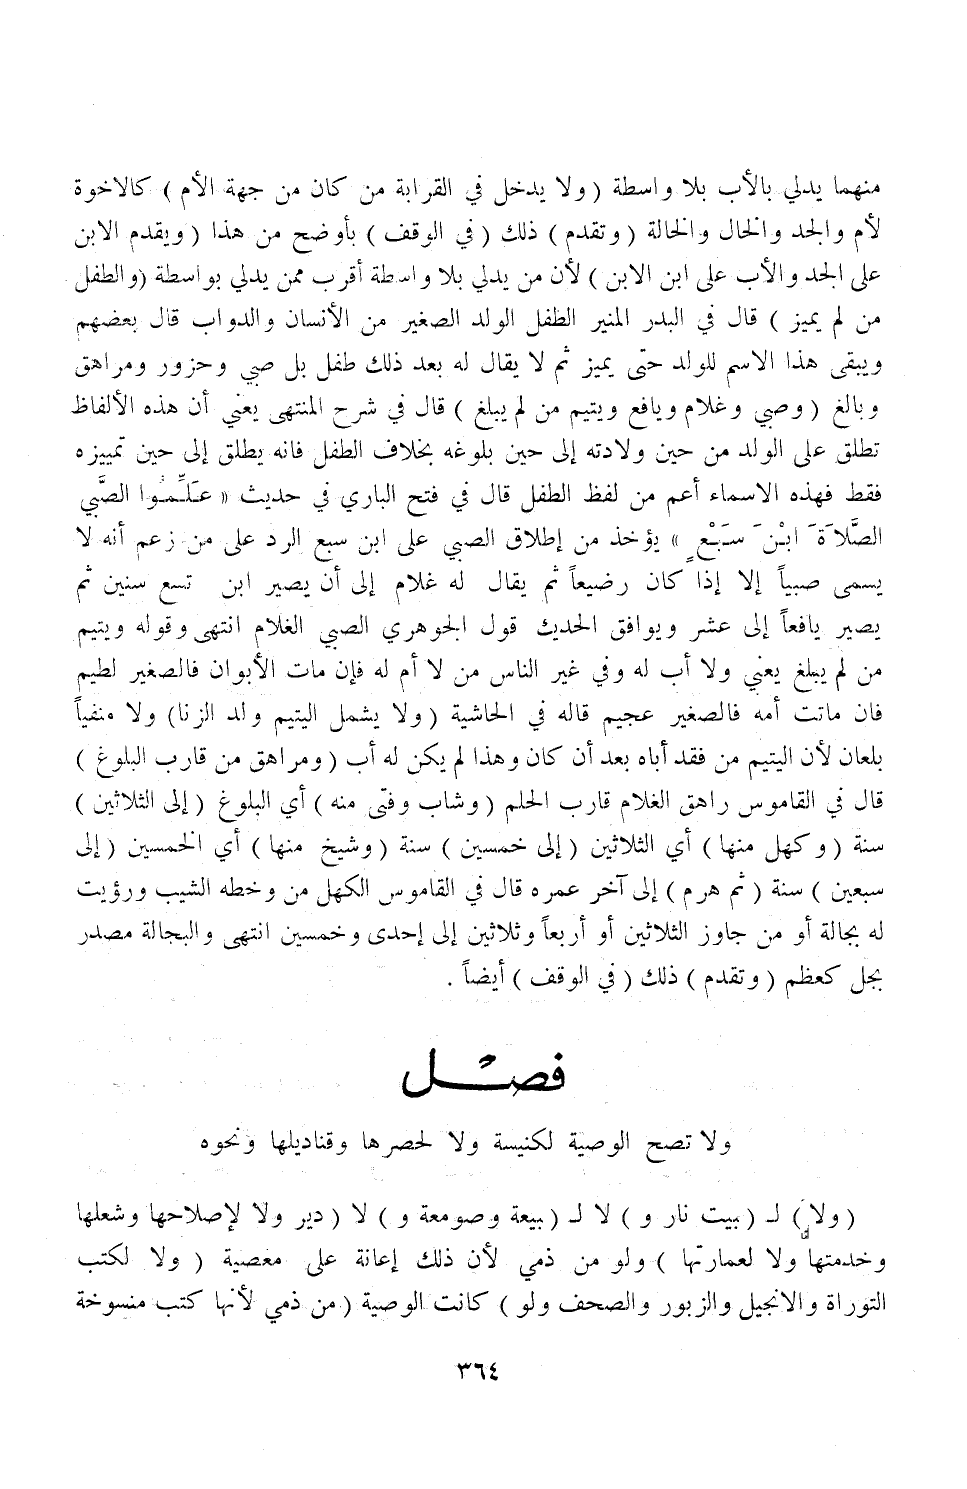 منهما يدلي بالأب بلا واسطة ( ولا يدخل في القرابة من كان من جهة الأم ) كالاخوة
لأم والجد والخال والخالة ( وتقدم ) ذلك ( في الوقف ) بأوضح من هذا ( ويقدم الابن
على الجد والأب على ابن الابن ) لأن من يدلي بلا واسطة أقرب ممن يدلي بواسطة (والطفل
من لم يميز ) قال في البدر المنير الطفل الولد الصغير من الأنسان والدواب قال بعضهم
ويبقى هذا الاسم للولد حتى يميز ثم لا يقال له بعد ذلك طفل بل صبي وحزور ومراهق
وبالغ ( وصبي وغلام ويافع ويتيم من لم يبلغ ) قال في شرح المنتهى يعني أن هذه الألفاظ
تطلق على الولد من حين ولادته إلى حين بلوغه بخلاف الطفل فانه يطلق إلى حين تمييزه
فقط فهذه الاسماء أعم من لفظ الطفل قال في فتح الباري في حديث « عَلِّمُوا الصَّبي
الصَّلاَةَ ابْنَ سَبْعٍ » يؤخذ من إطلاق الصبي على ابن سبع الرد على من زعم أنه لا
يسمى صبياً إلا إذا كان رضيعاً ثم يقال له غلام إلى أن يصير ابن تسع سنين ثم
يصير يافعاً إلى عشر ويوافق الحديث قول الجوهري الصبي الغلام انتهى وقوله ويتيم
من لم يبلغ يعني ولا أب له وفي غير الناس من لا أم له فإن مات الأبوان فالصغير لطيم
فان ماتت أمه فالصغير عجيم قاله في الحاشية ( ولا يشمل اليتيم ولد الزنا) ولا منفياً
بلعان لأن اليتيم من فقد أباه بعد أن كان وهذا لم يكن له أب ( ومراهق من قارب البلوغ )
قال في القاموس راهق الغلام قارب الحلم ( وشاب وفتى منه ) أي البلوغ ( إلى الثلاثين )
سنة ( وكهل منها ) أي الثلاثين ( إلى خمسين ) سنة ( وشيخ منها ) أي الخمسين ( إلى
سبعين ) سنة ( ثم هرم ) إلى آخر عمره قال في القاموس الكهل من وخطه الشيب ورؤيت
له بجالة أو من جاوز الثلاثين أو أربعاً وثلاثين إلى إحدى وخمسين انتهى والبجالة مصدر
بجل كعظم ( وتقدم ) ذلك ( في الوقف ) أيضاً .
فصْل
ولا تصح الوصية لكنيسة ولا لحصرها وقناديلها ونحوه
( ولا ) لـ ( بيت نار و ) لا لـ ( بيعة وصومعة و ) لا ( دير ولا لإصلاحها وشعلها
وخدمتها ولا لعمارتها ) ولو من ذمي لأن ذلك إعانة على معصية ( ولا لكتب
التوراة والانجيل والزبور والصحف ولو ) كانت الوصية ( من ذمي لأنها كتب منسوخة
٣٦٤